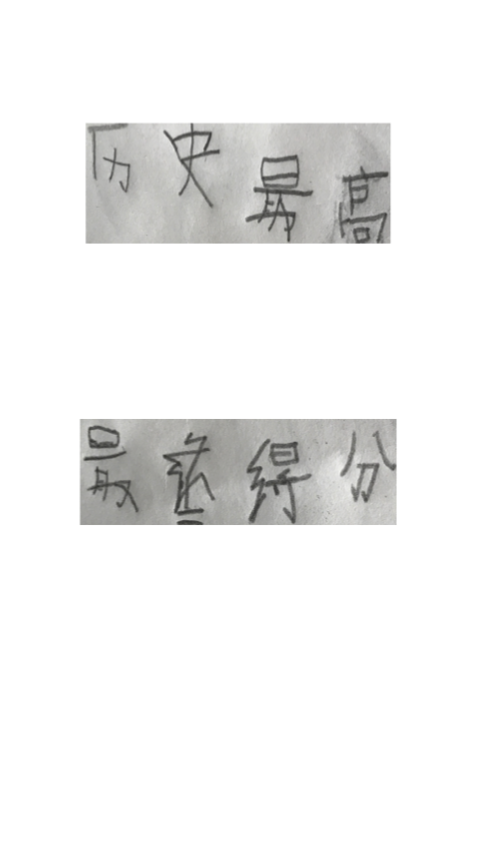 历史最高
最终得分